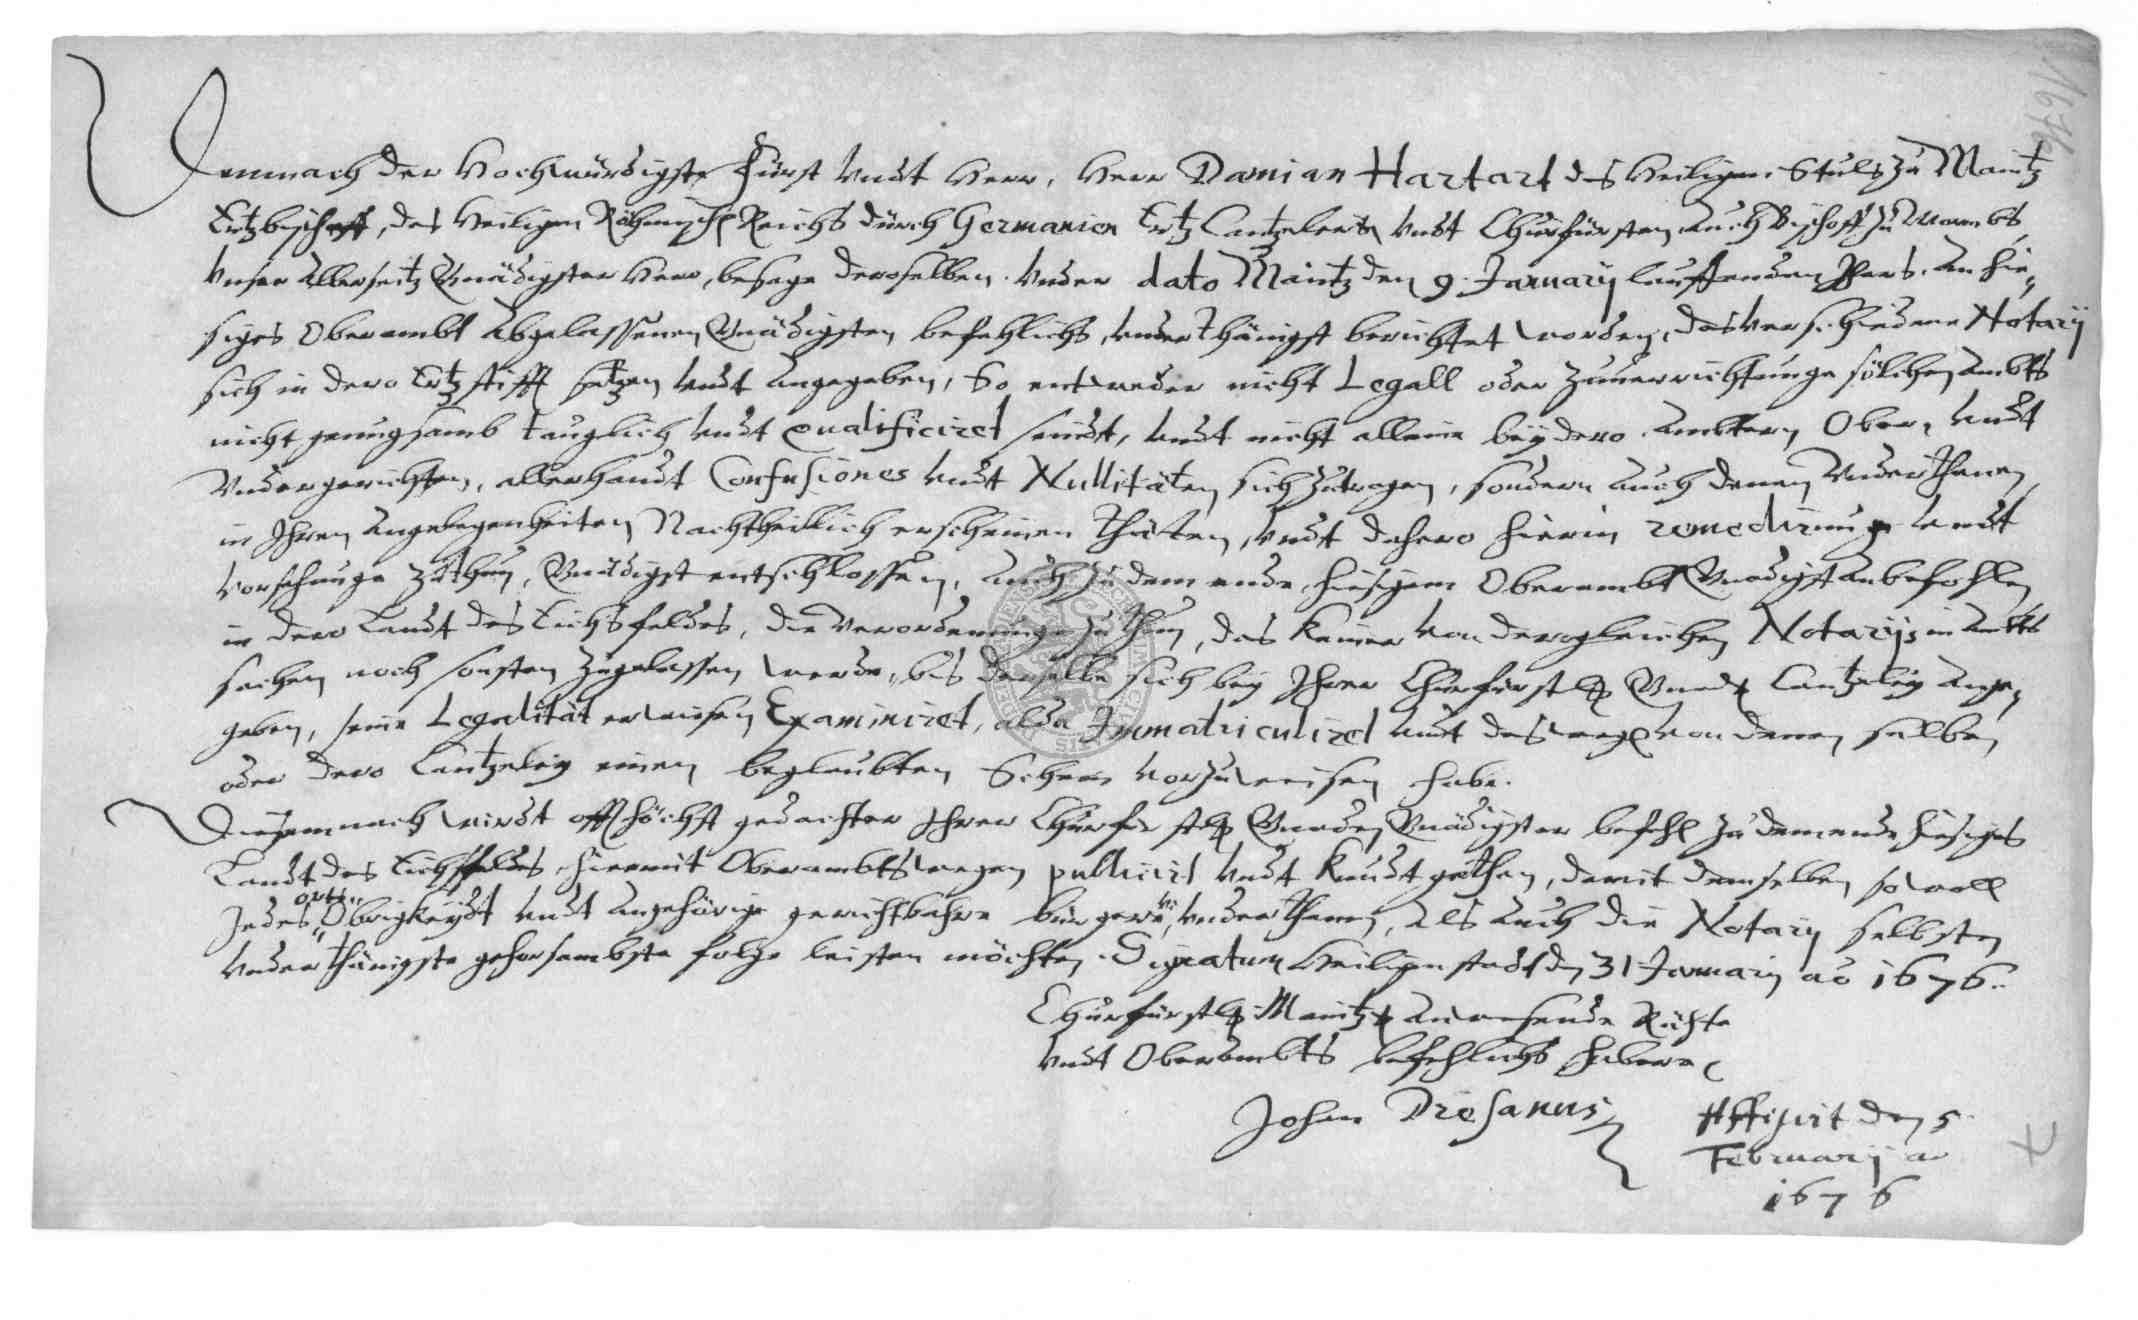 Demnach der Hochwürdigste Fürst vndt Herr, Herr Damian Hartart des Heiligen Stuls zu Maintz
Ertzbischoff, des Heiligen Römisch Reichs durch Germanien Ertz Cantzler vndt Churfürsten, auch Bischoff zu Wormbs
vnser allerseitz Gnädigster Herr, besage deroselben vnder dato Maintz den 9. January lauffenden Jhars, an hie„
siges Oberambt abgelassenen Gnädigsten befehlichs, vnderthänigst berichtet worden, das verschiedene Notarij
sich in dero Ertzstifft setzen vndt angegeben, So entweder nicht Legall oder zuuerrichtunge solchen Ambts
nicht genugsamb tauglich vndt qualificiret seindt, vndt nicht alleine bey dero Ambtern Ober, vndt
Vndergerichten, allerhandt Confusiones vndt Nullitäten sich zutragen, sondern auch denen Vnderthanen
in Ihren angelegenheiten Nachtheillich erscheinen thäten, vndt dahero hierin remedirung vndt
vorsehunge zuthun, Gnädigst entschlossen, auch zu dem ende hiesigem Oberambt Gnedigst anbefohlen
in dero Landt des Eichsfeldes, die verordenunge zu thun, das Keiner von dergleichen Notarijs in Ambts
sachen noch sonsten zugelassen werde, bis derselbe sich bey Ihrer Churfürstl Gnad Cantzeley ange„
geben, seine Legalität erwiesen Examiniret, alda Immatriculiret vndt deswegen von denen selben
oder dero Cantzeley einen beglaubten Schein vorzuweisen habe.
Diesemnach wirdt offthöchst gedachter Ihrer Churfürstl Gnaden Gnädigster befehl zu dem ende hiesiges
Landt des Eichsfeldes hiermit Oberambtswegen publicirt vndt Kundt gethan, damit demselben so woll
Jedes Orts Obrigkeydt vndt angehörige gerichtbahre bürgere vndt vnderthanen, als auch die Notarij selbsten
vnderthänigste gehorsambste folge leisten möchten. Signatum Heiligenstadt den 31 January ao 1676.
Churfürstl Maintz anwesende Räthe
vndt Oberambts befehlichs habere
Johan Dresanus
Affigirt den 5
February ao
1676
1676